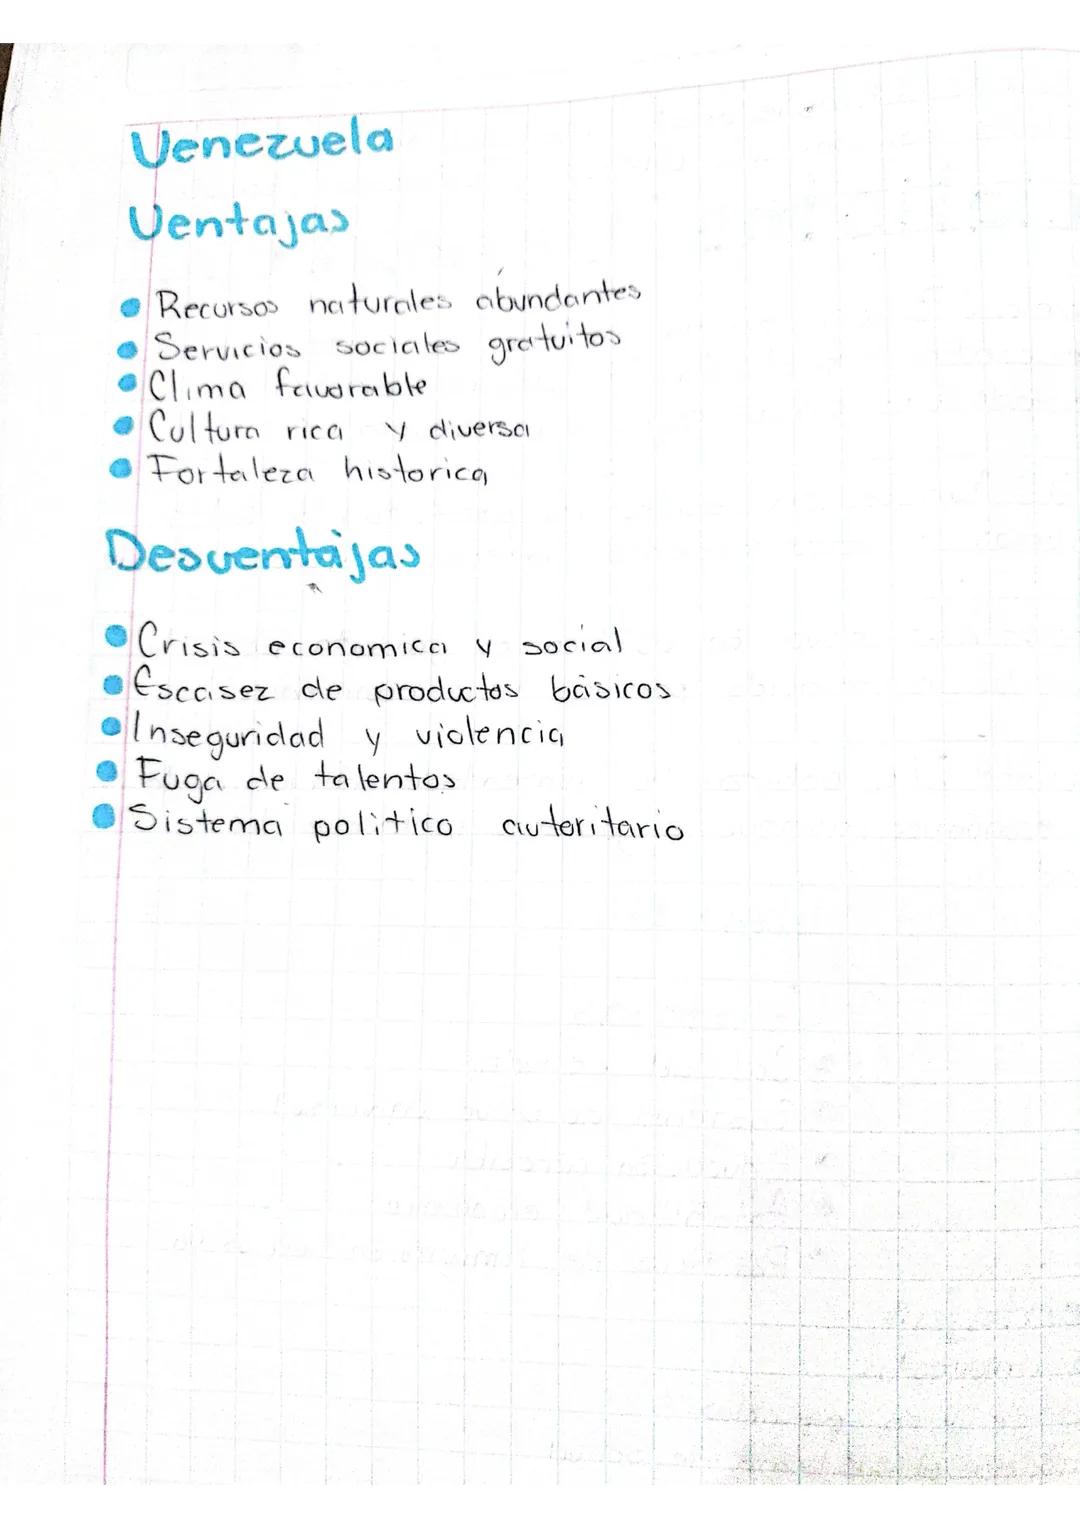 Venezuela
Ventajas
Recursos naturales abundantes
Servicios sociales gratuitos
Clima favorable
Cultura rica y diversa
Fortaleza historica
Desventajas
Crisis economica y social
Escasez de productos básicos
Inseguridad y violencia
Fuga de talentos
Sistema politico autoritario